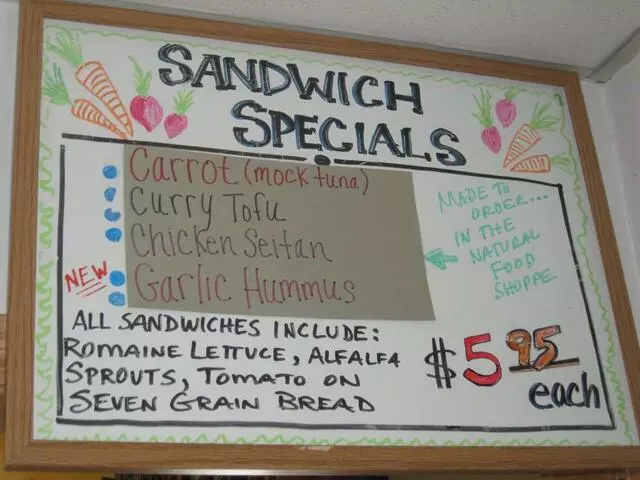 SANDWICH
SPECIALS
Carrot (mock tuna)
Curry Tofu
Chicken Seitan
NEW Garlic Hummus
MADE TO
ORDER...
IN THE
NATURAL
FOOD
SHOPPE
ALL SANDWICHES INCLUDE:
ROMAINE LETTUCE, ALFALFA
SPROUTS, TOMATO ON
SEVEN GRAIN BREAD
$5 95
each